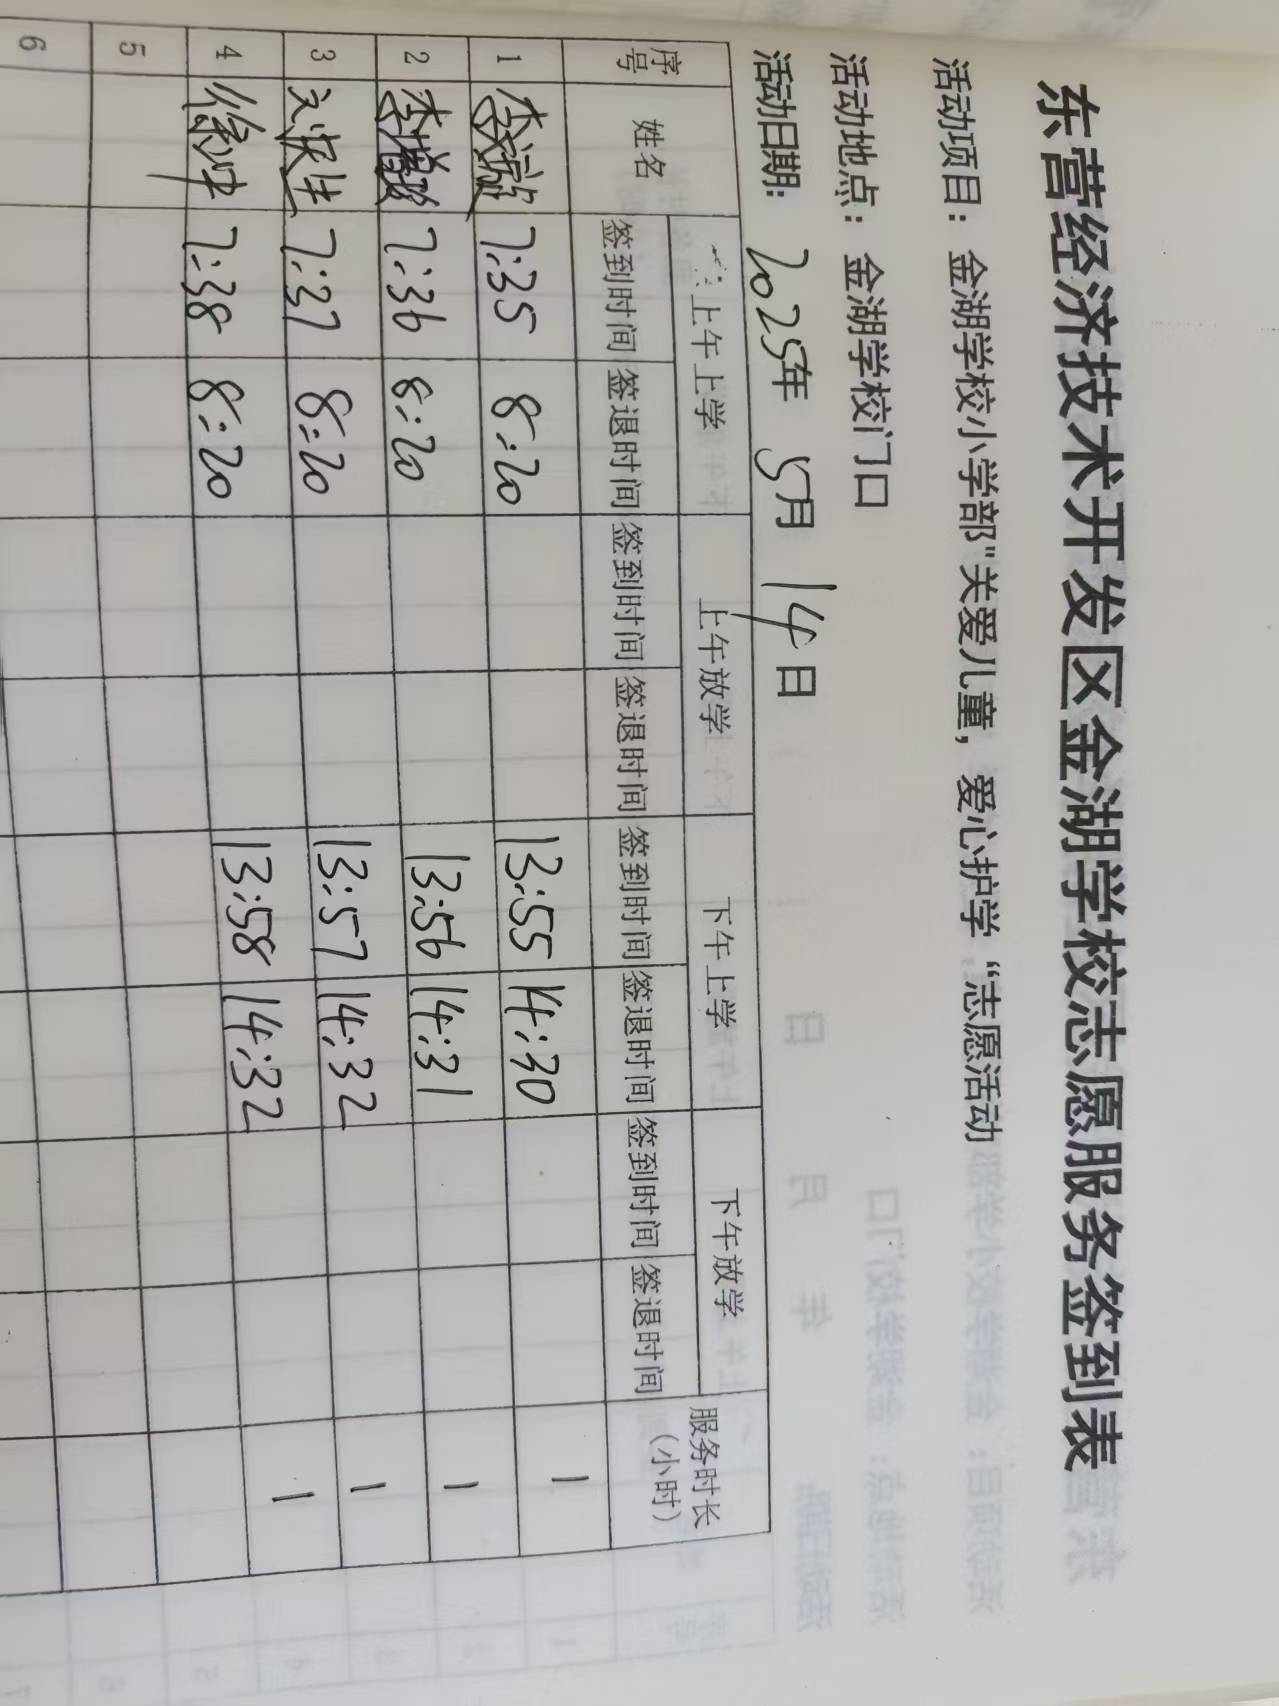 东营经济技术开发区金湖学校志愿服务签到表
活动项目：金湖学校小学部"关爱儿童，爱心护学“志愿活动
活动地点：金湖学校门口
活动日期：2025年 5月 14日
序号 姓名 上午上学 上午放学 下午上学 下午放学 服务时长（小时）
签到时间 签退时间 签到时间 签退时间 签到时间 签退时间 签到时间 签退时间
1 7:35 8:20 13:55 14:30 1
2 7:36 8:20 13:56 14:31 1
3 7:37 8:20 13:57 14:32 1
4 7:38 8:20 13:58 14:32 1
5
6